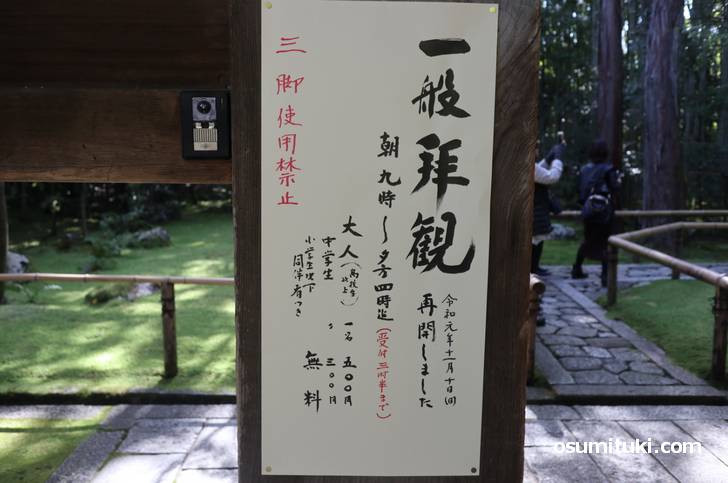 一般拝観
令和元年十一月十日(日)
再開しました
朝九時〜夕方四時迄(受付三時半まで)
大人(高校生以上)一名 五〇〇円
中学生 〃 三〇〇円
小学生以下同伴者つき 無料
三脚使用禁止
osumituki.com